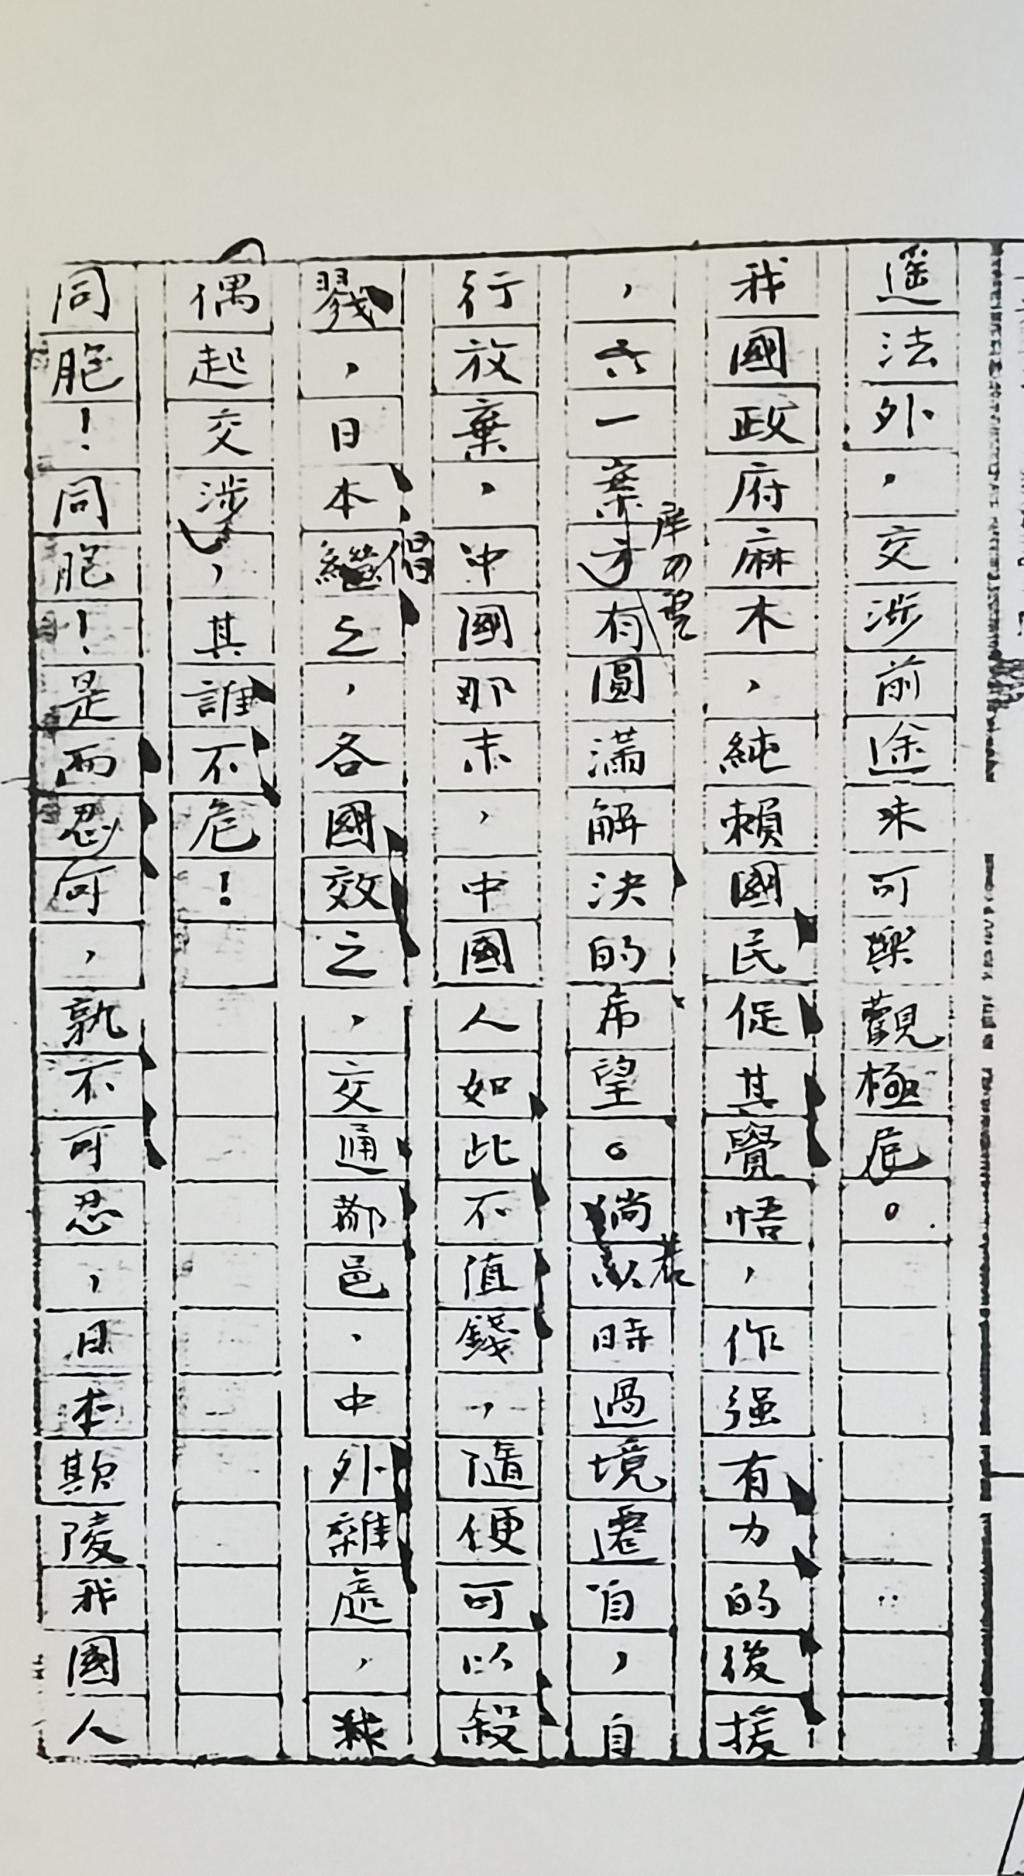 遥法外，交涉前途未可樂觀極。
我國政府麻木，純賴國民促其覺悟，作强有力的後援
，六一案方有圓滿解決的希望。倘以若時過境遷自，自
行放棄，中國那末，中國人如此不值錢，隨便可以殺
戮，日本繼倡之，各國效之，交通都邑，中外雜處，
偶起交涉，其誰不危！
同胞！同胞！是而忍可，孰不可忍，日本欺陵我國人